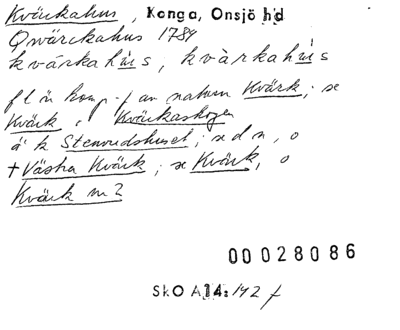 Kvärkahus, Konga, Onsjö hd
Qwärckahus 1784
kvárkahùs, kvàrkahùs
Kvärk; se
Kvärk, Kvärkaskogen
å k Stensrudshuset; se d n, o
+ Västra Kvärk; se Kvärk, o
Kvärk nr 2
00028086
SkO A14: 142 f